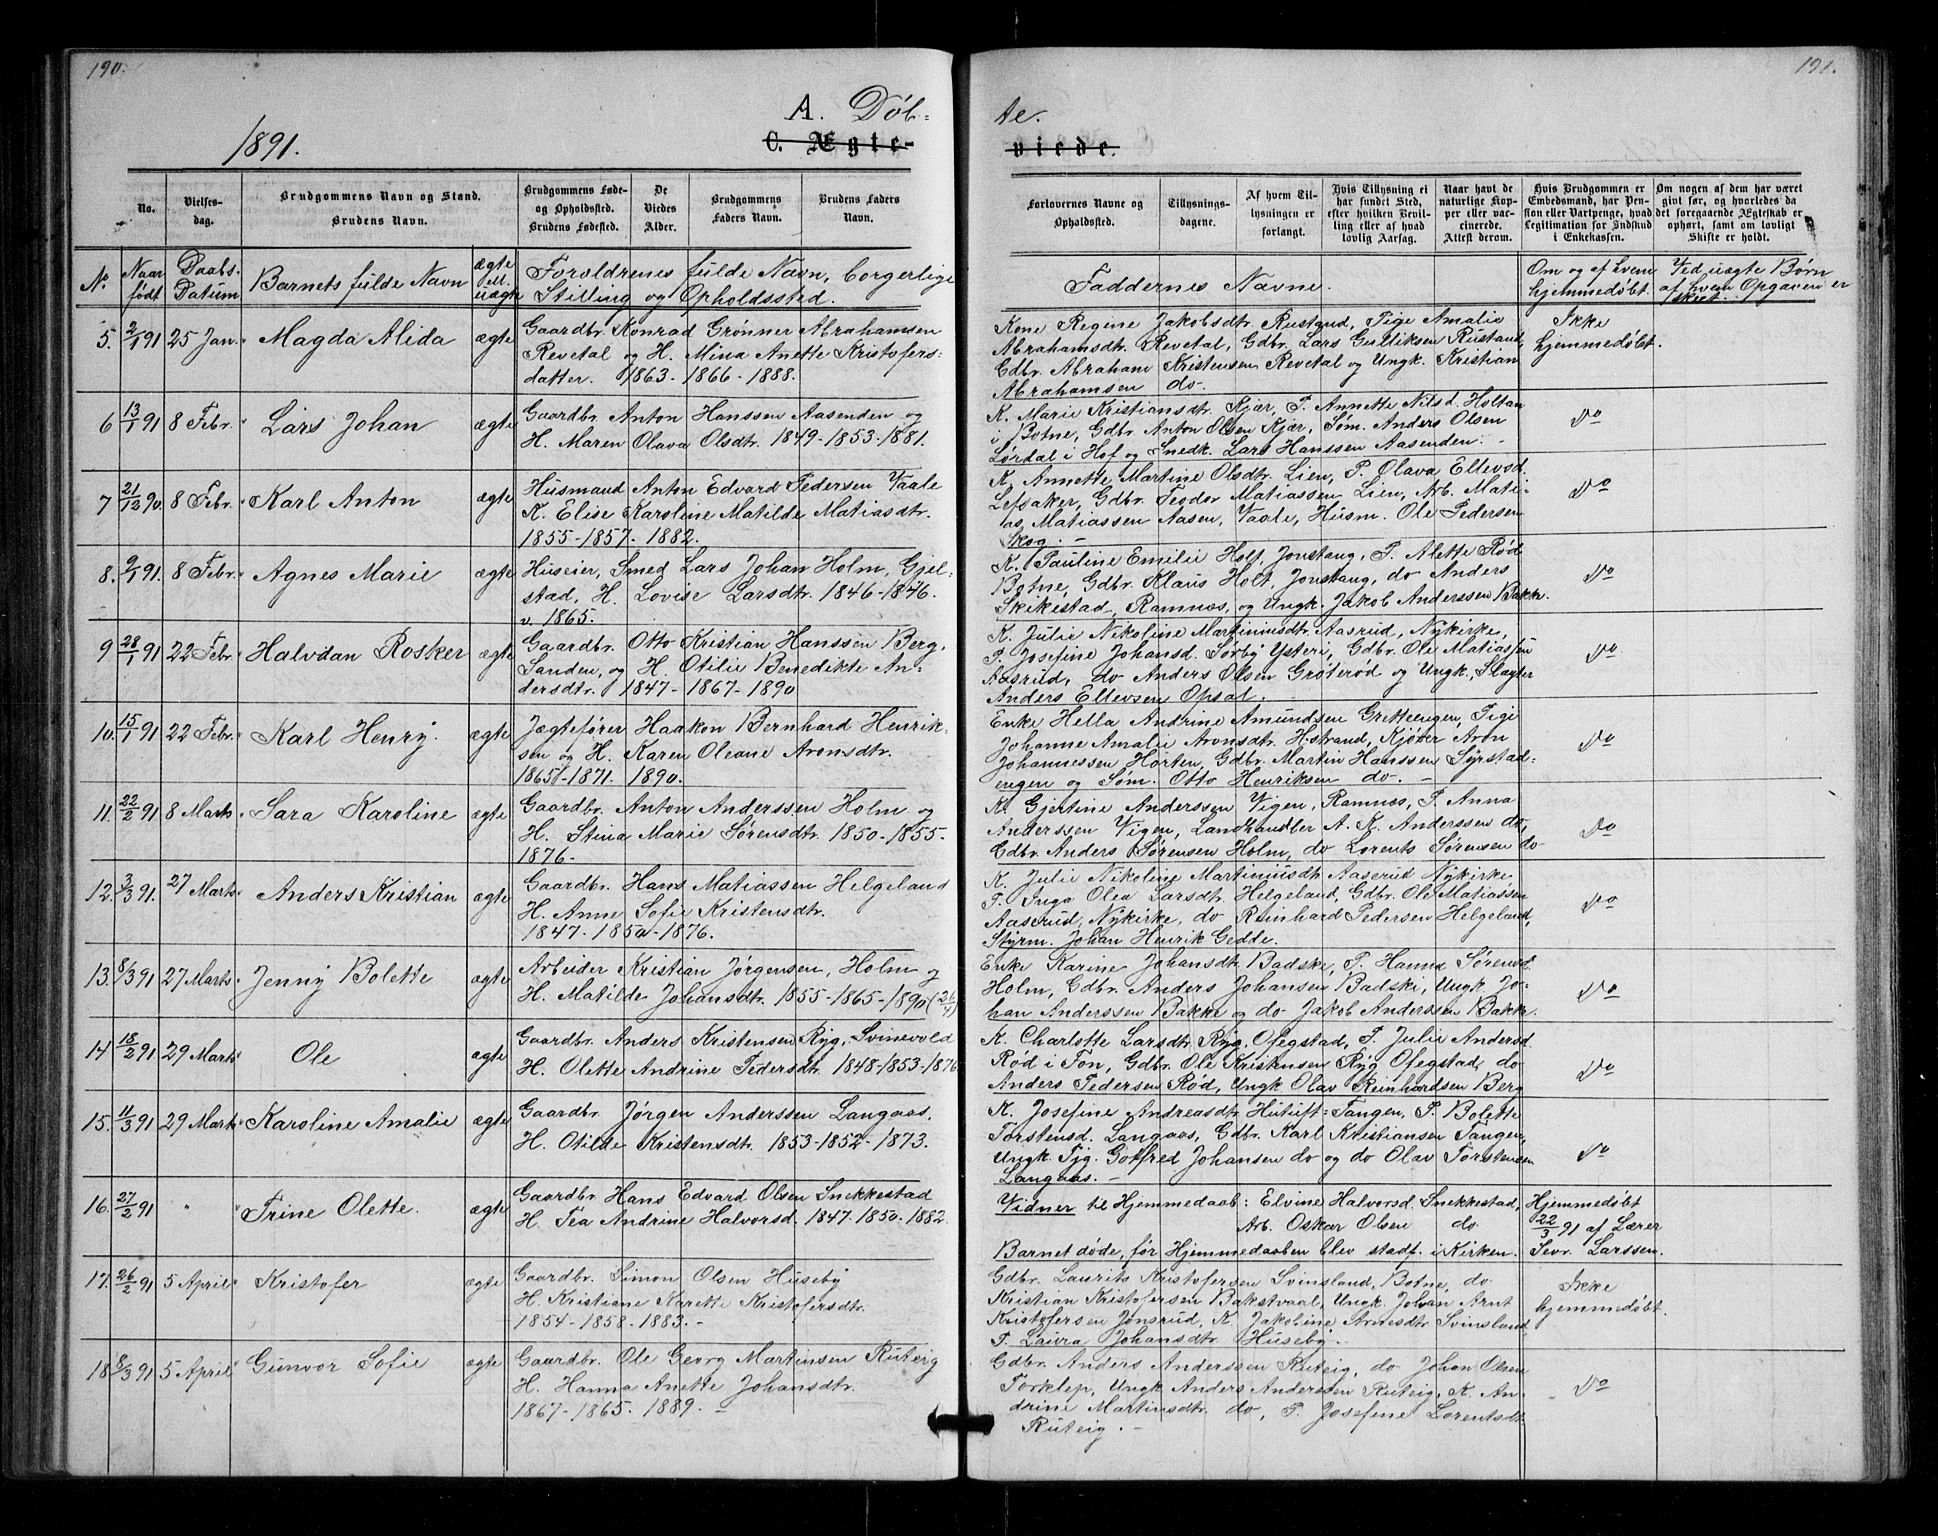 190.
191.
A. Døb-
te.
1891.
C. Ægte-
viede.
No.
Vielses-
dag.
Brudgommens Navn og Stand.
Brudens Navn.
Brudgommens Føde-
og Opholdssted.
Brudens Fødested.
De
Viedes
Alder.
Brudgommens
Faders Navn.
Brudens Faders
Navn.
Forlovernes Navne og
Opholdssted.
Tillysnings-
dagene.
Af hvem Til-
lysningen er
forlangt.
Hvis Tillysning ei
har fundet Sted,
efter hvilken Bevil-
ling eller af hvad
lovlig Aarsag.
Naar havt de
naturlige Kop-
per eller vac-
cinerede.
Attest derom.
Hvis Brudgommen er
Embedsmand, har Pen-
sion eller Vartpenge, hvad
Legitimation for Indskud
i Enkekassen.
Om nogen af dem har været
givt før, og hvorledes da
det foregaaende Ægteskab er
ophørt, samt om lovligt
Skifte er holdt.
No.
Naar
født
Daabs-
Datum
Barnets fulde Navn
ægte
ell.
uægte
Forældrenes fulde Navn, borgerlige
Stilling og Opholdssted.
Faddernes Navne.
Om og af hvem
hjemmedøbt.
Ved uægte Børn
af hvem Opgaven er
skeet.
5. 2/1 91 25 Jan. Magda Alida ægte
Gaardbr. Konrad Grønner Abrahamsen
Revetal og H. Mina Anette Kristofers-
datter. 1863. 1866-1888.
Kone Regine Jakobsdtr. Rustand, Pige Amalie
Abrahamsdtr. Revetal, Gdbr. Lars Gulliksen Rustand,
Gdbr. Abraham Kristensen Revetal og Ungk. Kristian
Abrahamsen do.
Ikke
hjemmedøbt.
6 13/1 91 8 Febr. Lars Johan ægte
Gaardbr. Anton Hanssen Aasenden og
H. Maren Olava Olsdtr. 1849-1853-1881.
K. Marie Kristiansdtr. Kjær, P. Annette Nilsd. Holtan
i Botne, Gdbr. Anton Olsen Kjær, Søm. Anders Olsen
Lørdal i Hof og Snedk. Lars Hanssen Aasenden.
Do
7 21/12 90. 8 Febr. Karl Anton ægte
Husmand Anton Edvard Pedersen Vaale
K. Elise Karoline Matilde Matiasdtr.
1855-1857. 1882.
K. Annette Martine Olsdtr. Lien, P. Olava Ellevsd.
Lefsaker, Gdbr. Teodor Matiassen Lien, Arb. Mati-
as Matiassen Aasen, Vaale, Husm. Ole Pedersen
Skog.
Do
8. 9/1 91. 8 Febr. Agnes Marie ægte
Huseier, Smed Lars Johan Holm, Gjel-
stad, H. Lovise Larsdtr. 1846-1846.
v. 1865.
K. Pauline Emilie Holt, Jonstang, P. Alette Rød
Botne, Gdbr. Klaus Holt, Jonstang, do Anders
Skikestad, Ramnæs, og Ungk. Jakob Anderssen Bakke.
Do
9 28/1 91 22 Febr. Halvdan Rosker ægte
Gaardbr. Otto Kristian Hanssen Berg,
Sanden, og H. Otilie Benedikte An-
dersdtr. 1847-1867-1890
K. Julie Nikoline Martiniusdtr. Aasrud, Nykirke,
P. Josefine Johansd. Sørby Ysteri, Gdbr. Ole Matiassen
Aasrud, do Anders Olsen Grøterød og Ungk. Slagter
Anders Ellevsen Opsal.
Do
10. 15/1 91 22 Febr. Karl Henry. ægte
Jægtefører Haakon Bernhard Henrik-
sen og H. Karen Oleane Aronsdtr.
1865-1871. 1890.
Enke Hella Andrine Amundsen Gretteengen, Pige
Johanne Amalie Aronsdtr. Hstrand, Kjøver Aron
Johannessen Horten, Gdbr. Martin Hanssen Syrstad-
engen og Søm. Otto Henriksen do.
Do
11. 22/2 91 8 Marts Sara Karoline ægte
Gaardbr. Anton Anderssen Holm og
H. Stina Marie Sørensdtr. 1850-1855-
1876-
K. Gjertine Anderssen Vigen, Ramnæs, P. Anna
Anderssen Vigen, Landhandler A. K. Anderssen do,
Gdbr. Anders Sørensen Holm, do Lorents Sørensen do
Do
12. 3/3 91. 27 Marts Anders Kristian ægte
Gaardbr. Hans Matiassen Helgeland
H. Anne Sofie Kristensdtr.
1847. 1850-1876.
K. Julie Nikoline Martiniusdtr Aaserud Nykirke
P. Inga Olea Larsdtr. Helgeland, Gdbr. Ole Matiassen
Aaserud, Nykirke, do Reinhard Pedersen Helgeland,
Styrm. Johan Henrik Gedde.
Do
13. 8/3 91 27 Marts Jenny Bolette ægte
Arbeider Kristian Jørgensen, Holm og
H. Matilde Johansdtr. 1855-1865-1890
Enke Karine Johansdtr. Badske, P. Hanna Sørensd.
Holm, Gdbr. Anders Johansen Badski, Ungk Jo-
han Anderssen Bakke og do Jakob Anderssen Bakke.
Do
14 18/2 91 29 Marts Ole ægte
Gaardbr. Anders Kristensen Ryg, Svinevold
H. Olette Andrine Pedersdtr. 1848-1853-1876
K. Charlotte Larsdtr Ryg, Ofegstad, P. Julie Andersd.
Rød i Fon, Gdbr. Ole Kristensen Ryg Ofegstad, do
Anders Pedersen Rød, Ungk Olav Reinhardsen Berg
Do
15. 11/3 91 29 Marts Karoline Amalie ægte
Gaardbr. Jørgen Anderssen Langaas,
H. Otilde Kristensdtr. 1853-1852-1873.
K. Josefine Andreasdtr. Hutuft-Tangen, P. Bolette
Torstensd. Langaas, Gdbr. Karl Kristiansen Tangen,
Ungk. Tjg. Gotfred Johansen do og do Olav Torstensen
Langaas.
Do
16. 27/2 91 " Trine Olette. ægte
Gaardbr. Hans Edvard Olsen Snekkestad
H. Tea Andrine Halvorsd. 1847. 1850. 1882.
Vidner til Hjemmedaab: Elvine Halvorsd. Snekkestad,
Arb. Oskar Olsen do
Barnet døde, før Hjemmedaaben blev stadf. i Kirken.
Hjemmedøbt
22/3 91 af Lærer
Sevr. Larssen.
17. 26/2 91 5 April Kristofer ægte
Gaardbr. Simon Olsen Huseby
H. Kristiane Karette Kristofersdtr.
1854-1858-1883.
Gdbr. Laurits Kristofersen Svinsland, Botne, do
Kristian Kristofersen Bakstvaal, Ungk. Johan Arnt
Kristofersen Jonsrud, K. Jakobine Arnesdtr. Svinsland,
P. Laura Johansdtr. Huseby.
Ikke
hjemmedøbt.
18 8/3 91 5 April Gunvor Sofie ægte
Gaardbr. Ole Georg Martinsen Ruteig
H. Hanna Anette Johansdtr.
1867-1865. 1889.
Gdbr. Anders Anderssen Ruteig, do Johan Olsen
Torklep, Ungk Anders Anderssen Ruteig, K. An-
drine Martinsdtr. do, P. Josefine Lorentsdtr
Ruteig.
Do